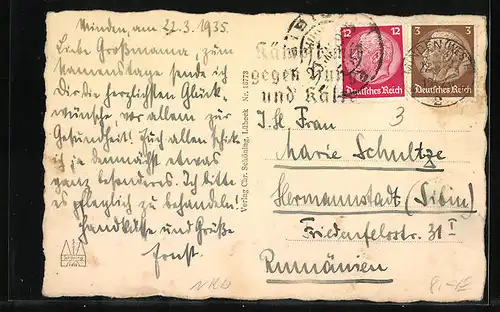 Minden, am 22.3.1935.
Liebe Großmama, zum
Namenstage sende ich
Dir die herzlichsten Glück-
wünsche, vor allem zur
Gesundheit! Euch allen schicke
ich demnächst etwas
ganz besonderes. Ich bitte
es pfleglich zu behandeln!
Handküsse und Grüße
Ernst.
Verlag Chr. Schöning, Lübeck Nr. 16773
Kämpft
gegen Hunger
und Kälte
12 12
Deutsches Reich
3 3
Deutsches Reich
MINDEN (WESTF)
3
Frau
Marie Schultze
Hermannstadt (Sibiu)
Friedenfelsstr. 31 I
Rumänien